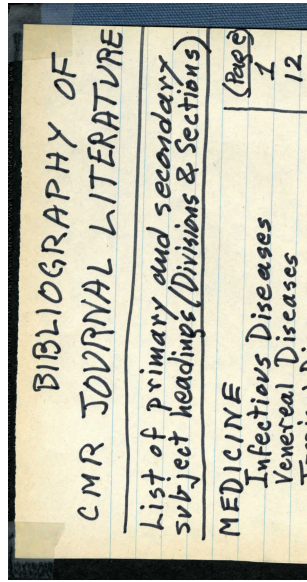 BIBLIOGRAPHY OF
CMR JOURNAL LITERATURE
List of primary and secondary
subject headings (Divisions & Sections)
(Page)
MEDICINE
Infectious Diseases 1
Venereal Diseases 12